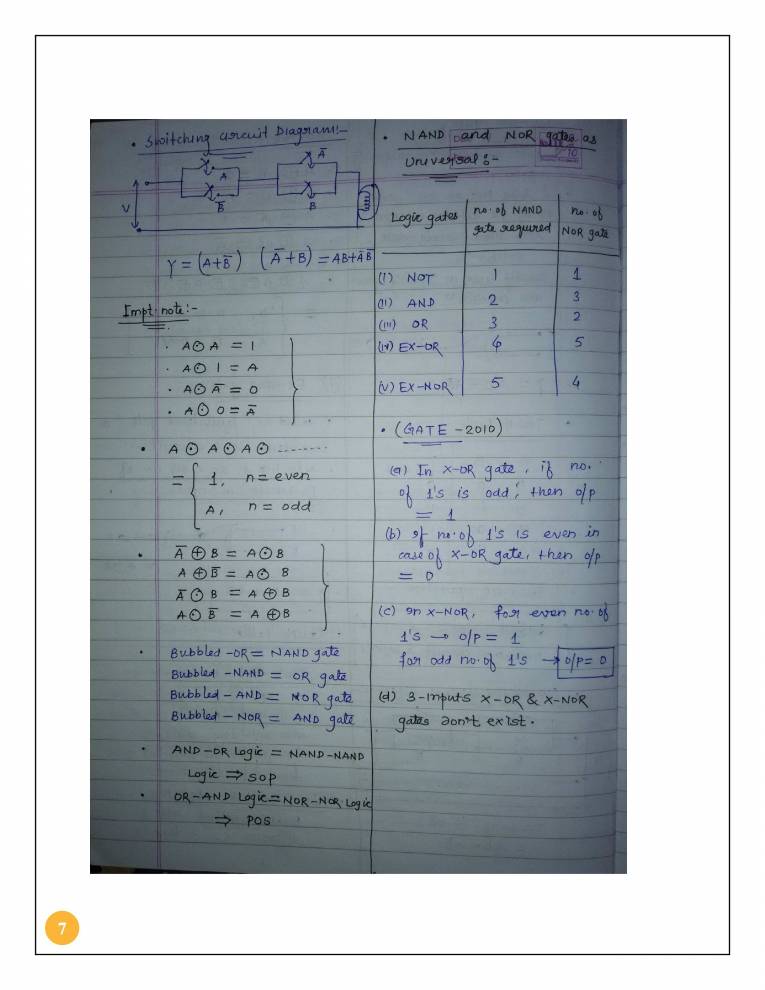 • Switching Circuit Diagram:-
A
B̅
A̅
B
V
Y = (A+B̅) (A̅+B) = AB+A̅B̅
Impt. note:-
• A⊙A = 1
• A⊙1 = A
• A⊙A̅ = 0
• A⊙0 = A̅
• A⊙A⊙A⊙ --------
= { 1, n = even
A, n = odd
• A̅⊕B = A⊙B
A⊕B̅ = A⊙B
A̅⊙B = A⊕B
A⊙B̅ = A⊕B
• Bubbled -OR = NAND gate
Bubbled -NAND = OR gate
Bubbled - AND = NOR gate
Bubbled - NOR = AND gate
• AND-OR Logic = NAND-NAND
Logic ⇒ SOP
• OR-AND Logic = NOR-NOR Logic
⇒ POS
• NAND and NOR gates as
Universal:-
Logic gates | no. of NAND gate required | no. of NOR gate
(i) NOT 1 1
(ii) AND 2 3
(iii) OR 3 2
(iv) EX-OR 4 5
(v) EX-NOR 5 4
• (GATE -2010)
(a) In X-OR gate, if no.
of 1's is odd, then o/p
= 1
(b) If no. of 1's is even in
case of X-OR gate, then o/p
= 0
(c) In X-NOR, for even no. of
1's → o/p = 1
for odd no. of 1's → o/p = 0
(d) 3-inputs X-OR & X-NOR
gates don't exist.
7